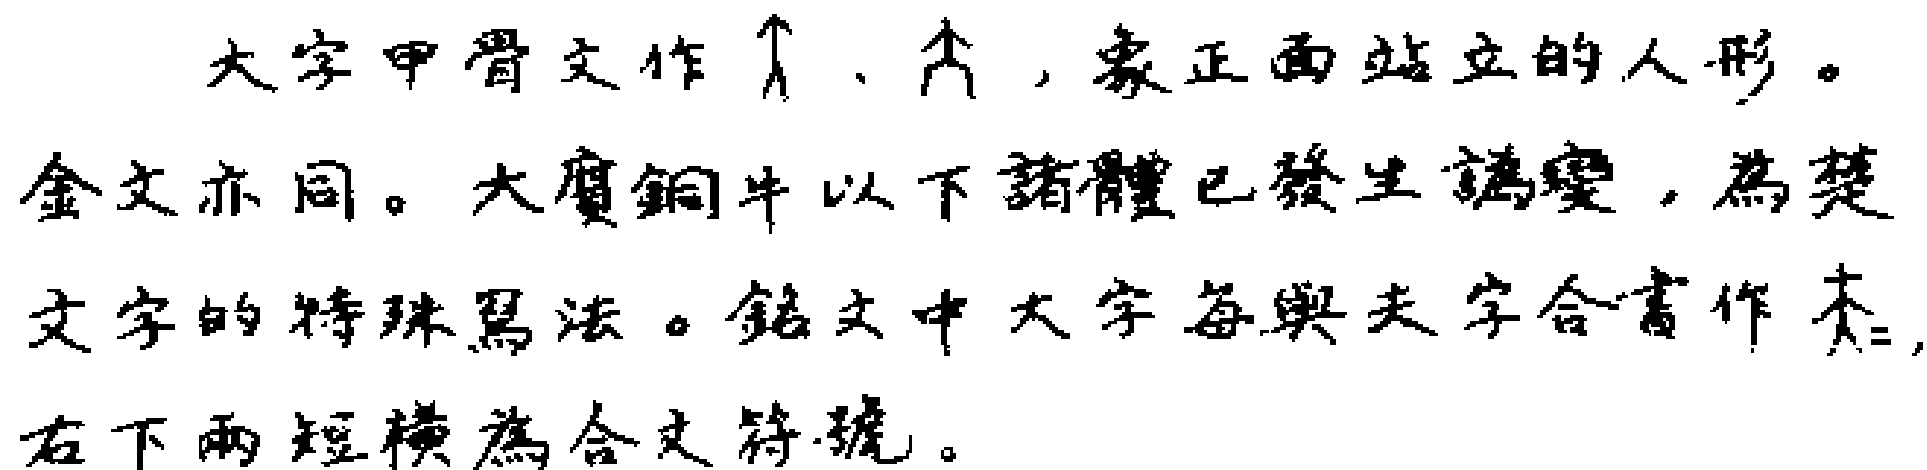 大字甲骨文作、,象正面站立的人形。
金文亦同。大𠪚銅牛以下諸體已發生譌變,為楚
文字的特殊寫法。銘文中大字每與夫字合書作,
右下兩短横為合文符號。